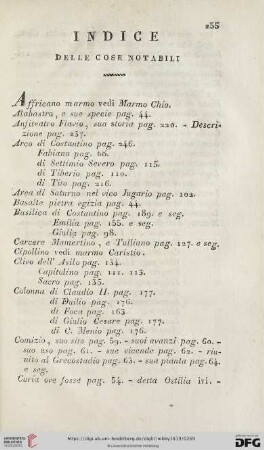 255
INDICE
DELLE COSE NOTABILI
Affricano marmo vedi Marmo Chio.
Alabastro, e sue specie pag. 44.
Anfiteatro Flavio, sua storia pag. 220. - Descri-
zione pag. 237.
Arco di Costantino pag. 246.
Fabiano pag. 66.
di Settimio Severo pag. 115.
di Tiberio pag. 110.
di Tito pag. 216.
Area di Saturno nel vico Jugario pag. 102.
Basalte pietra egizia pag. 44.
Basilica di Costantino pag. 189. e seg.
Emilia pag. 155. e seg.
Giulia pag. 98.
Carcere Mamertino, e Tulliano pag. 127. e seg.
Cipollino vedi marmo Caristio.
Clivo dell' Asilo pag. 134.
Capitolino pag. 111. 113.
Sacro pag. 135.
Colonna di Claudio II. pag. 177.
di Duilio pag. 176.
di Foca pag. 163.
di Giulio Cesare pag. 177.
di C. Menio pag. 176.
Comizio, suo sito pag. 59. - suoi avanzi pag. 60. -
suo uso pag. 61. - sue vicende pag. 62. - riu-
nito al Grecostadio pag. 63. - sua pianta pag. 64.
e seg.
Curia ove fosse pag. 54. - detta Ostilia ivi. -
UNIVERSITÄTS-
BIBLIOTHEK
HEIDELBERG
DFG